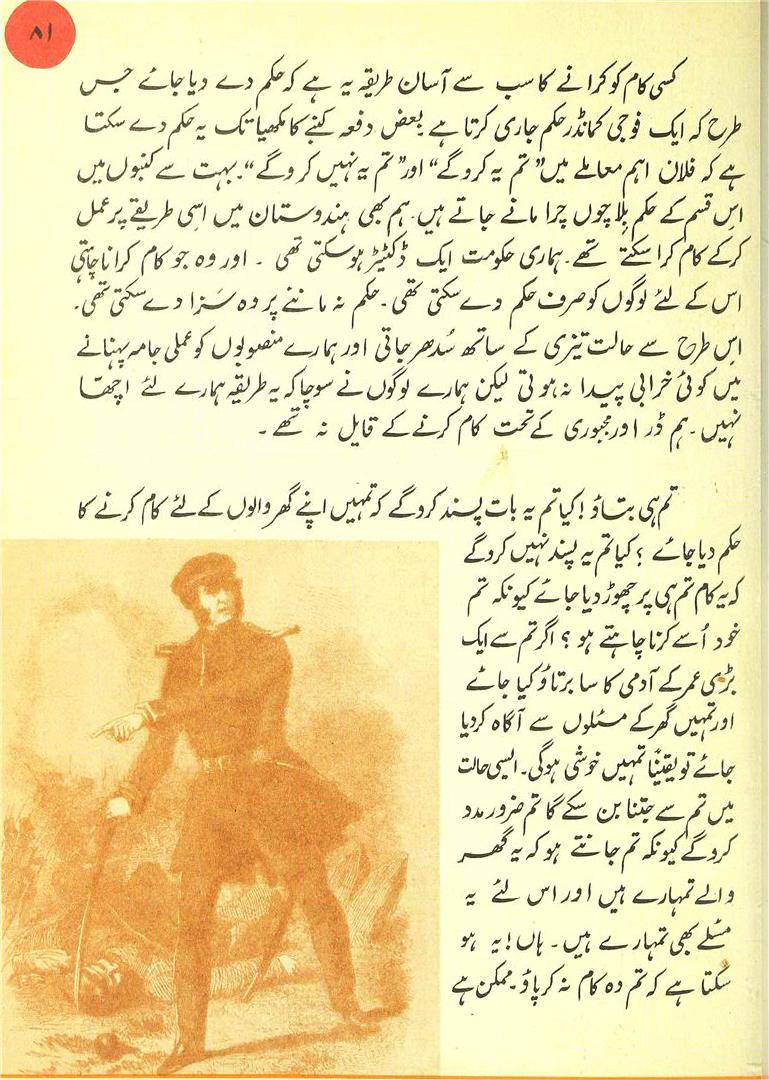 ۸۱
کسی کام کو کرانے کا سب سے آسان طریقہ یہ ہے کہ حکم دے دیا جائے جس
طرح کہ ایک فوجی کمانڈر حکم جاری کرتا ہے بعض دفعہ کنبے کا مکھیا تک یہ حکم دے سکتا
ہے کہ فلاں اہم معاملے میں ”تم یہ کرو گے“ اور ”تم یہ نہیں کرو گے“۔ بہت سے کنبوں میں
اس قسم کے حکم بلا چوں چرا مانے جاتے ہیں۔ ہم بھی ہندوستان میں اسی طریقے پر عمل
کر کے کام کرا سکتے تھے۔ ہماری حکومت ایک ڈکٹیٹر ہو سکتی تھی ۔ اور وہ جو کام کرانا چاہتی
اس کے لئے لوگوں کو صرف حکم دے سکتی تھی۔ حکم نہ ماننے پر وہ سَزا دے سکتی تھی۔
اِس طرح سے حالت تیزی کے ساتھ سُدھر جاتی اور ہمارے منصوبوں کو عملی جامہ پہنانے
میں کوئی خرابی پیدا نہ ہوتی لیکن ہمارے لوگوں نے سوچا کہ یہ طریقہ ہمارے لئے اچھّا
نہیں۔ ہم ڈر اور مجبوری کے تحت کام کرنے کے قایل نہ تھے ۔
تم ہی بتاؤ! کیا تم یہ بات پسند کرو گے کہ تمہیں اپنے گھر والوں کے لئے کام کرنے کا
حکم دیا جائے ؟ کیا تم یہ پسند نہیں کرو گے
کہ یہ کام تم ہی پر چھوڑ دیا جائے کیونکہ تم
خود اُسے کرنا چاہتے ہو ؟ اگر تم سے ایک
بڑی عمر کے آدمی کا سا برتاؤ کیا جائے
اور تمہیں گھر کے مسئلوں سے آگاہ کر دیا
جائے تو یقیناً تمہیں خوشی ہوگی۔ ایسی حالت
میں تم سے جتنا بن سکے گا تم ضرور مدد
کرو گے کیونکہ تم جانتے ہو کہ یہ گھر
والے تمہارے ہیں اور اس لئے یہ
مسئلے بھی تمہارے ہیں ۔ ہاں! یہ ہو
سکتا ہے کہ تم وہ کام نہ کر پاؤ۔ ممکن ہے